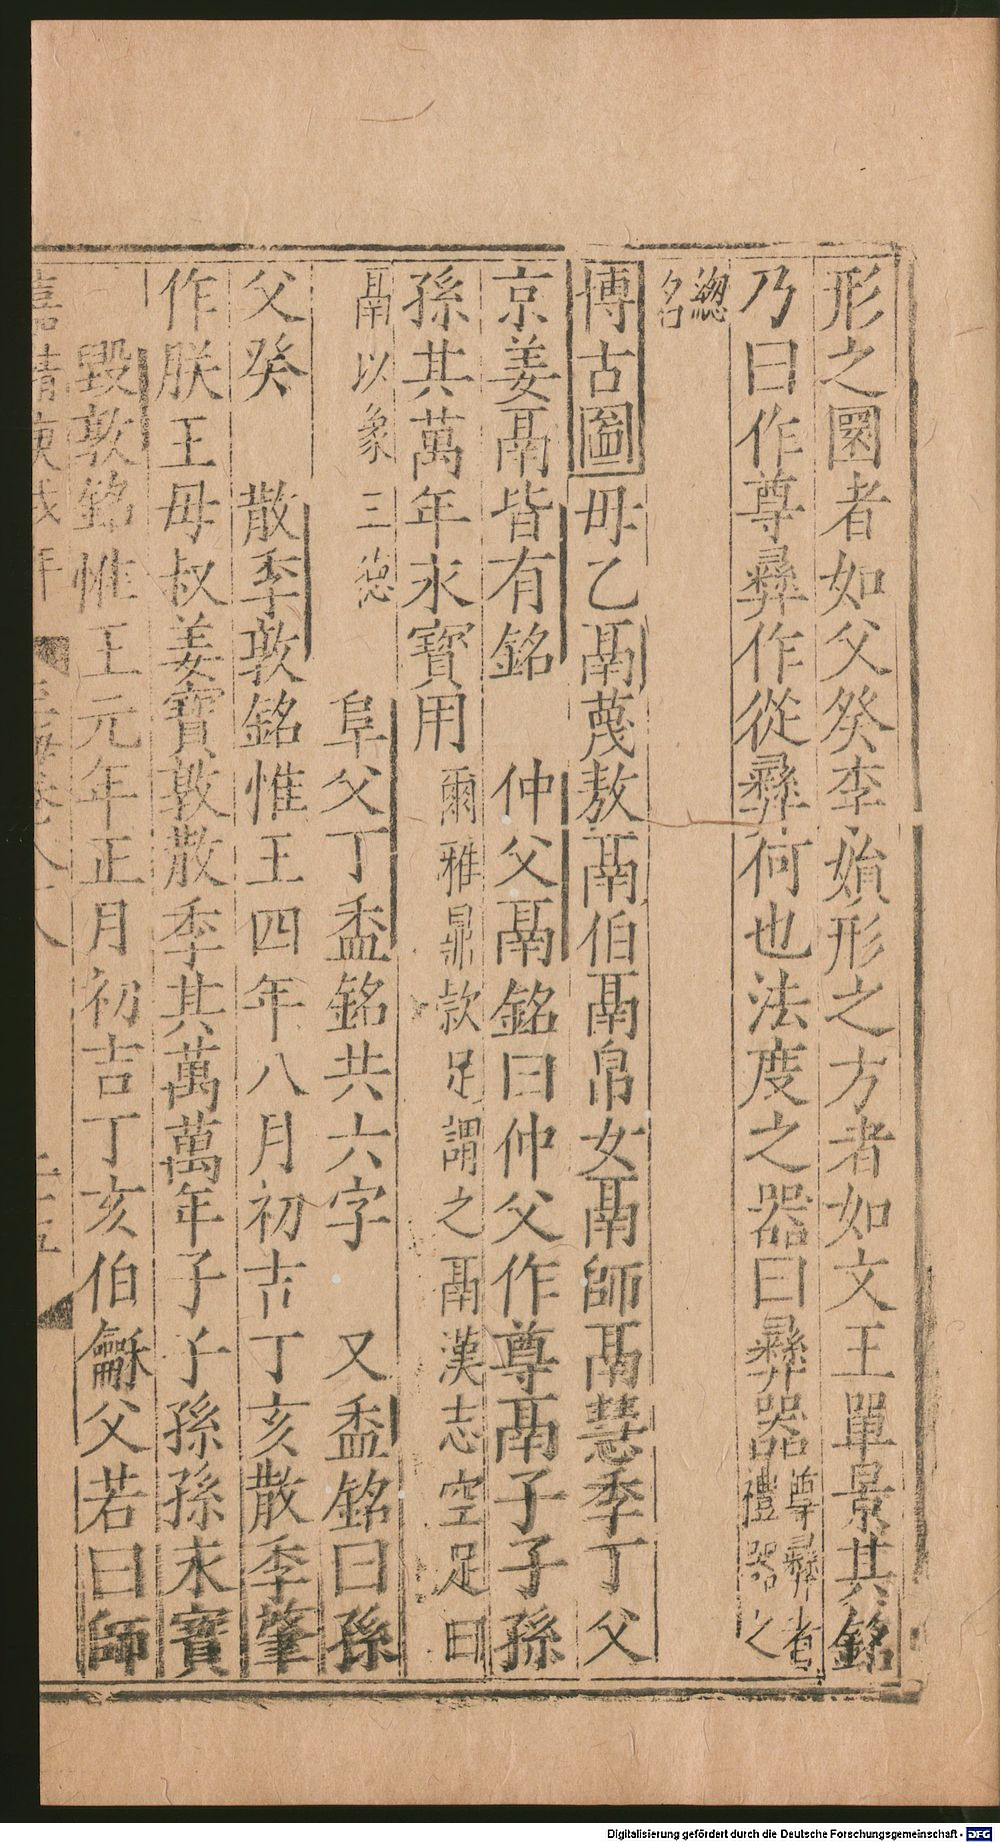 形之圜者如父癸李㜏形之方者如文王單景其銘
乃曰作尊彝作從彝何也法度之器曰彝器尊彝者禮器之
總名
博古圖毋乙鬲蔑敖鬲伯鬲帛女鬲師鬲慧季丁父
京姜鬲皆有銘 仲父鬲銘曰仲父作尊鬲子子孫
孫其萬年永寶用爾雅鼎款足謂之鬲漢志空足曰
鬲以象三德 阜父丁盉銘共六字 又盉銘曰孫
父癸 散季敦銘惟王四年八月初吉丁亥散季肇
作朕王母叔姜寶敦散季其萬萬年子子孫孫永寶
毀敦銘惟王元年正月初吉丁亥伯龢父若曰師
嘉靖庚戌年
二十五
Digitalisierung gefördert durch die Deutsche Forschungsgemeinschaft - DFG